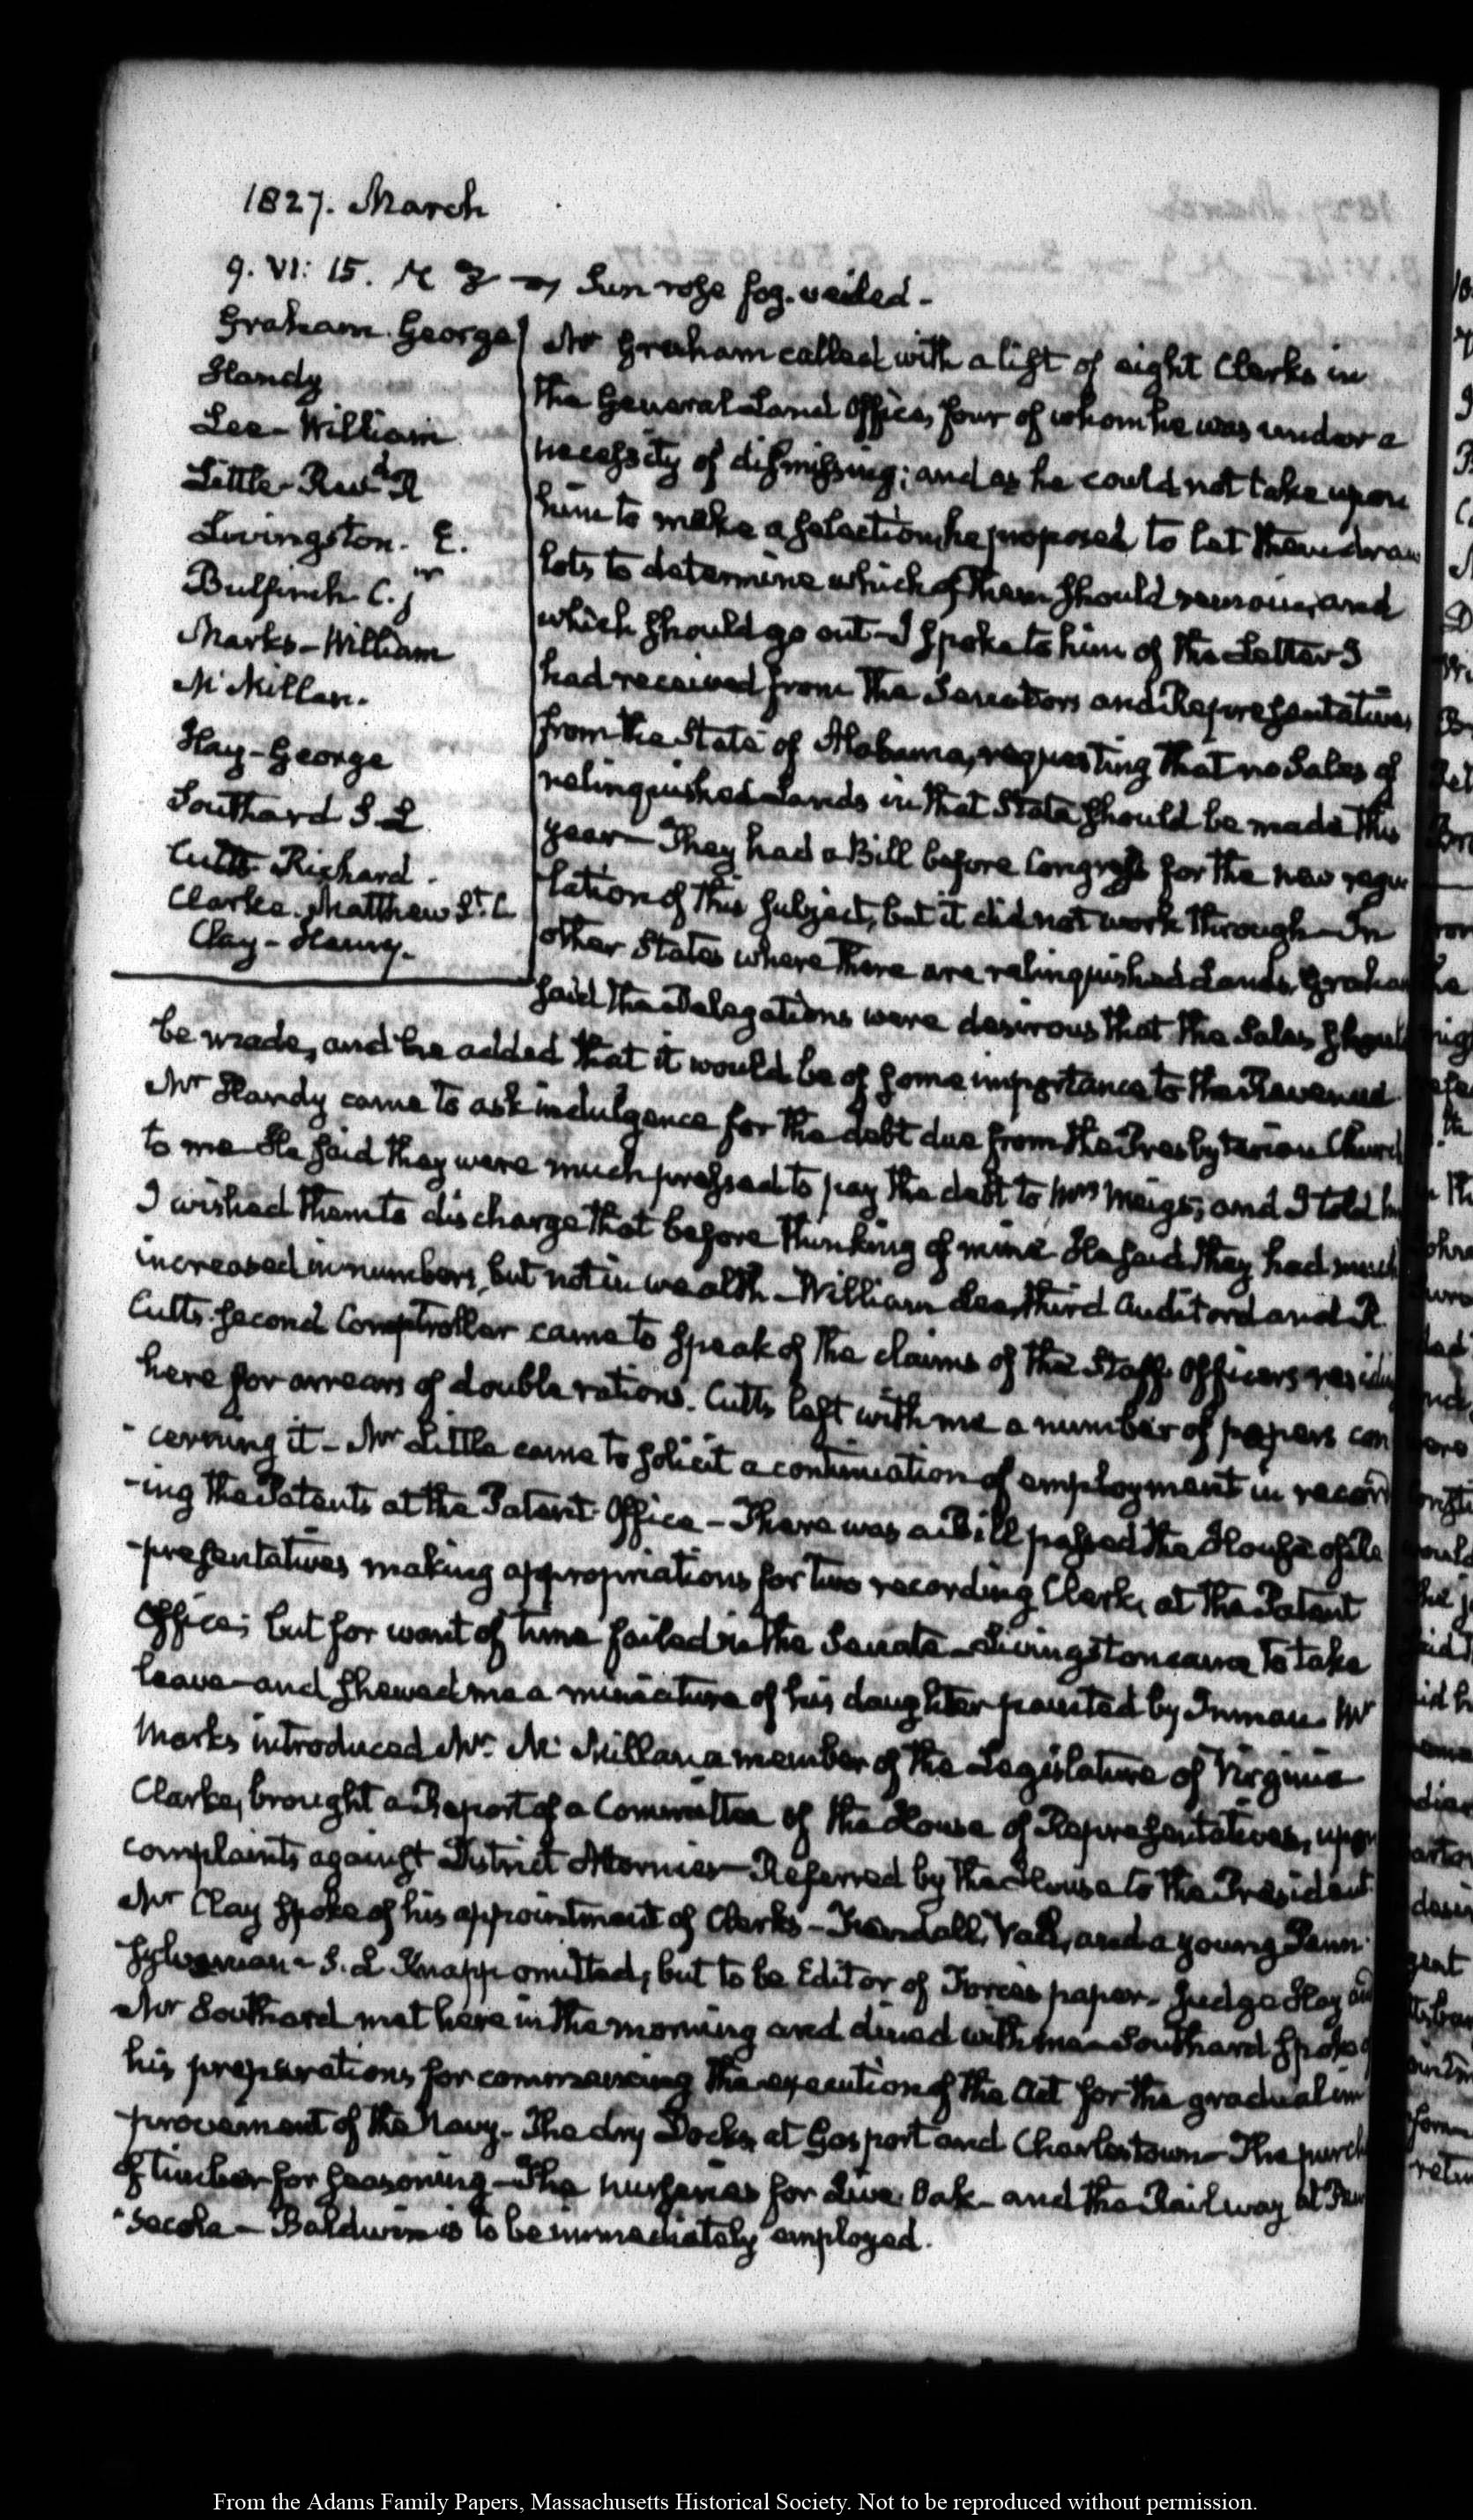 1827. March
9. VI: 15. Sun rose fog-veiled-
Graham. George
Handy
Lee-William
Little-Revd R
Livingston. E.
Bulfinch C. jr
Marks-William
McMillan.
Hay-George
Southard S L
Cutts Richard.
Clarke. Matthew St. C
Clay-Henry.
Mr Graham called with a list of eight Clerks in
the General Land Office, four of whom he was under a
necessity of dismissing; and as he could not take upon
him to make a selection, he proposed to let them draw
lots to determine which of them should remain, and
which should go out-I spoke to him of the Letter I
had received from the Senators and Representatives
from the State of Alabama, requesting that no Sales of
relinquished Lands in that State should be made this
year- They had a Bill before Congress for the new regu
lation of this subject, but it did not work through-In
other States where there are relinquished Lands, Graham
said the Delegations were desirous that the Sales should
be made, and he added that it would be of some importance to the Revenue
Mr Handy came to ask indulgence for the debt due from the Presbyterian Church
to me-He said they were much pressed to pay the debt to Mrs Meigs; and I told
I wished them to discharge that before thinking of mine He said they had much
increased in numbers, but not in wealth-William Lee, third Auditor and R.
Cutts. Second Comptroller came to speak of the claims of the Staff Officers residing
here for arrears of double rations. Cutts left with me a number of papers con
-cerning it-Mr Little came to solicit a continuation of employment in record
-ing the Patents at the Patent-Office-There was a Bill passed the House of Re
-presentatives making appropriations for two recording Clerks at the Patent
Office; but for want of time failed in the Senate-Livingston came to take
leave-and shewed me a miniature of his daughter painted by Inman. Mr
Marks introduced Mr. McMillan a member of the Legislature of Virginia
Clarke, brought a Report of a Committee of the House of Representatives, upon
complaints against District Attornies-Referred by the House to the President.
Mr Clay spoke of his appointment of Clerks-Kendall, Vail, and a young Penn
sylvanian-S. L Knapp omitted, but to be Editor of Force's paper. Judge Hay and
Mr Southard met here in the morning and dined with me-Southard spoke of
his preparations for commencing the execution of the Act for the gradual im
-provement of the Navy. The dry Docks at Gosport and Charlestown-The purch
of timber for seasoning-The nurseries for Live Oak-and the Railway at Pen
-sacola-Baldwin is to be immediately employed.
From the Adams Family Papers, Massachusetts Historical Society. Not to be reproduced without permission.